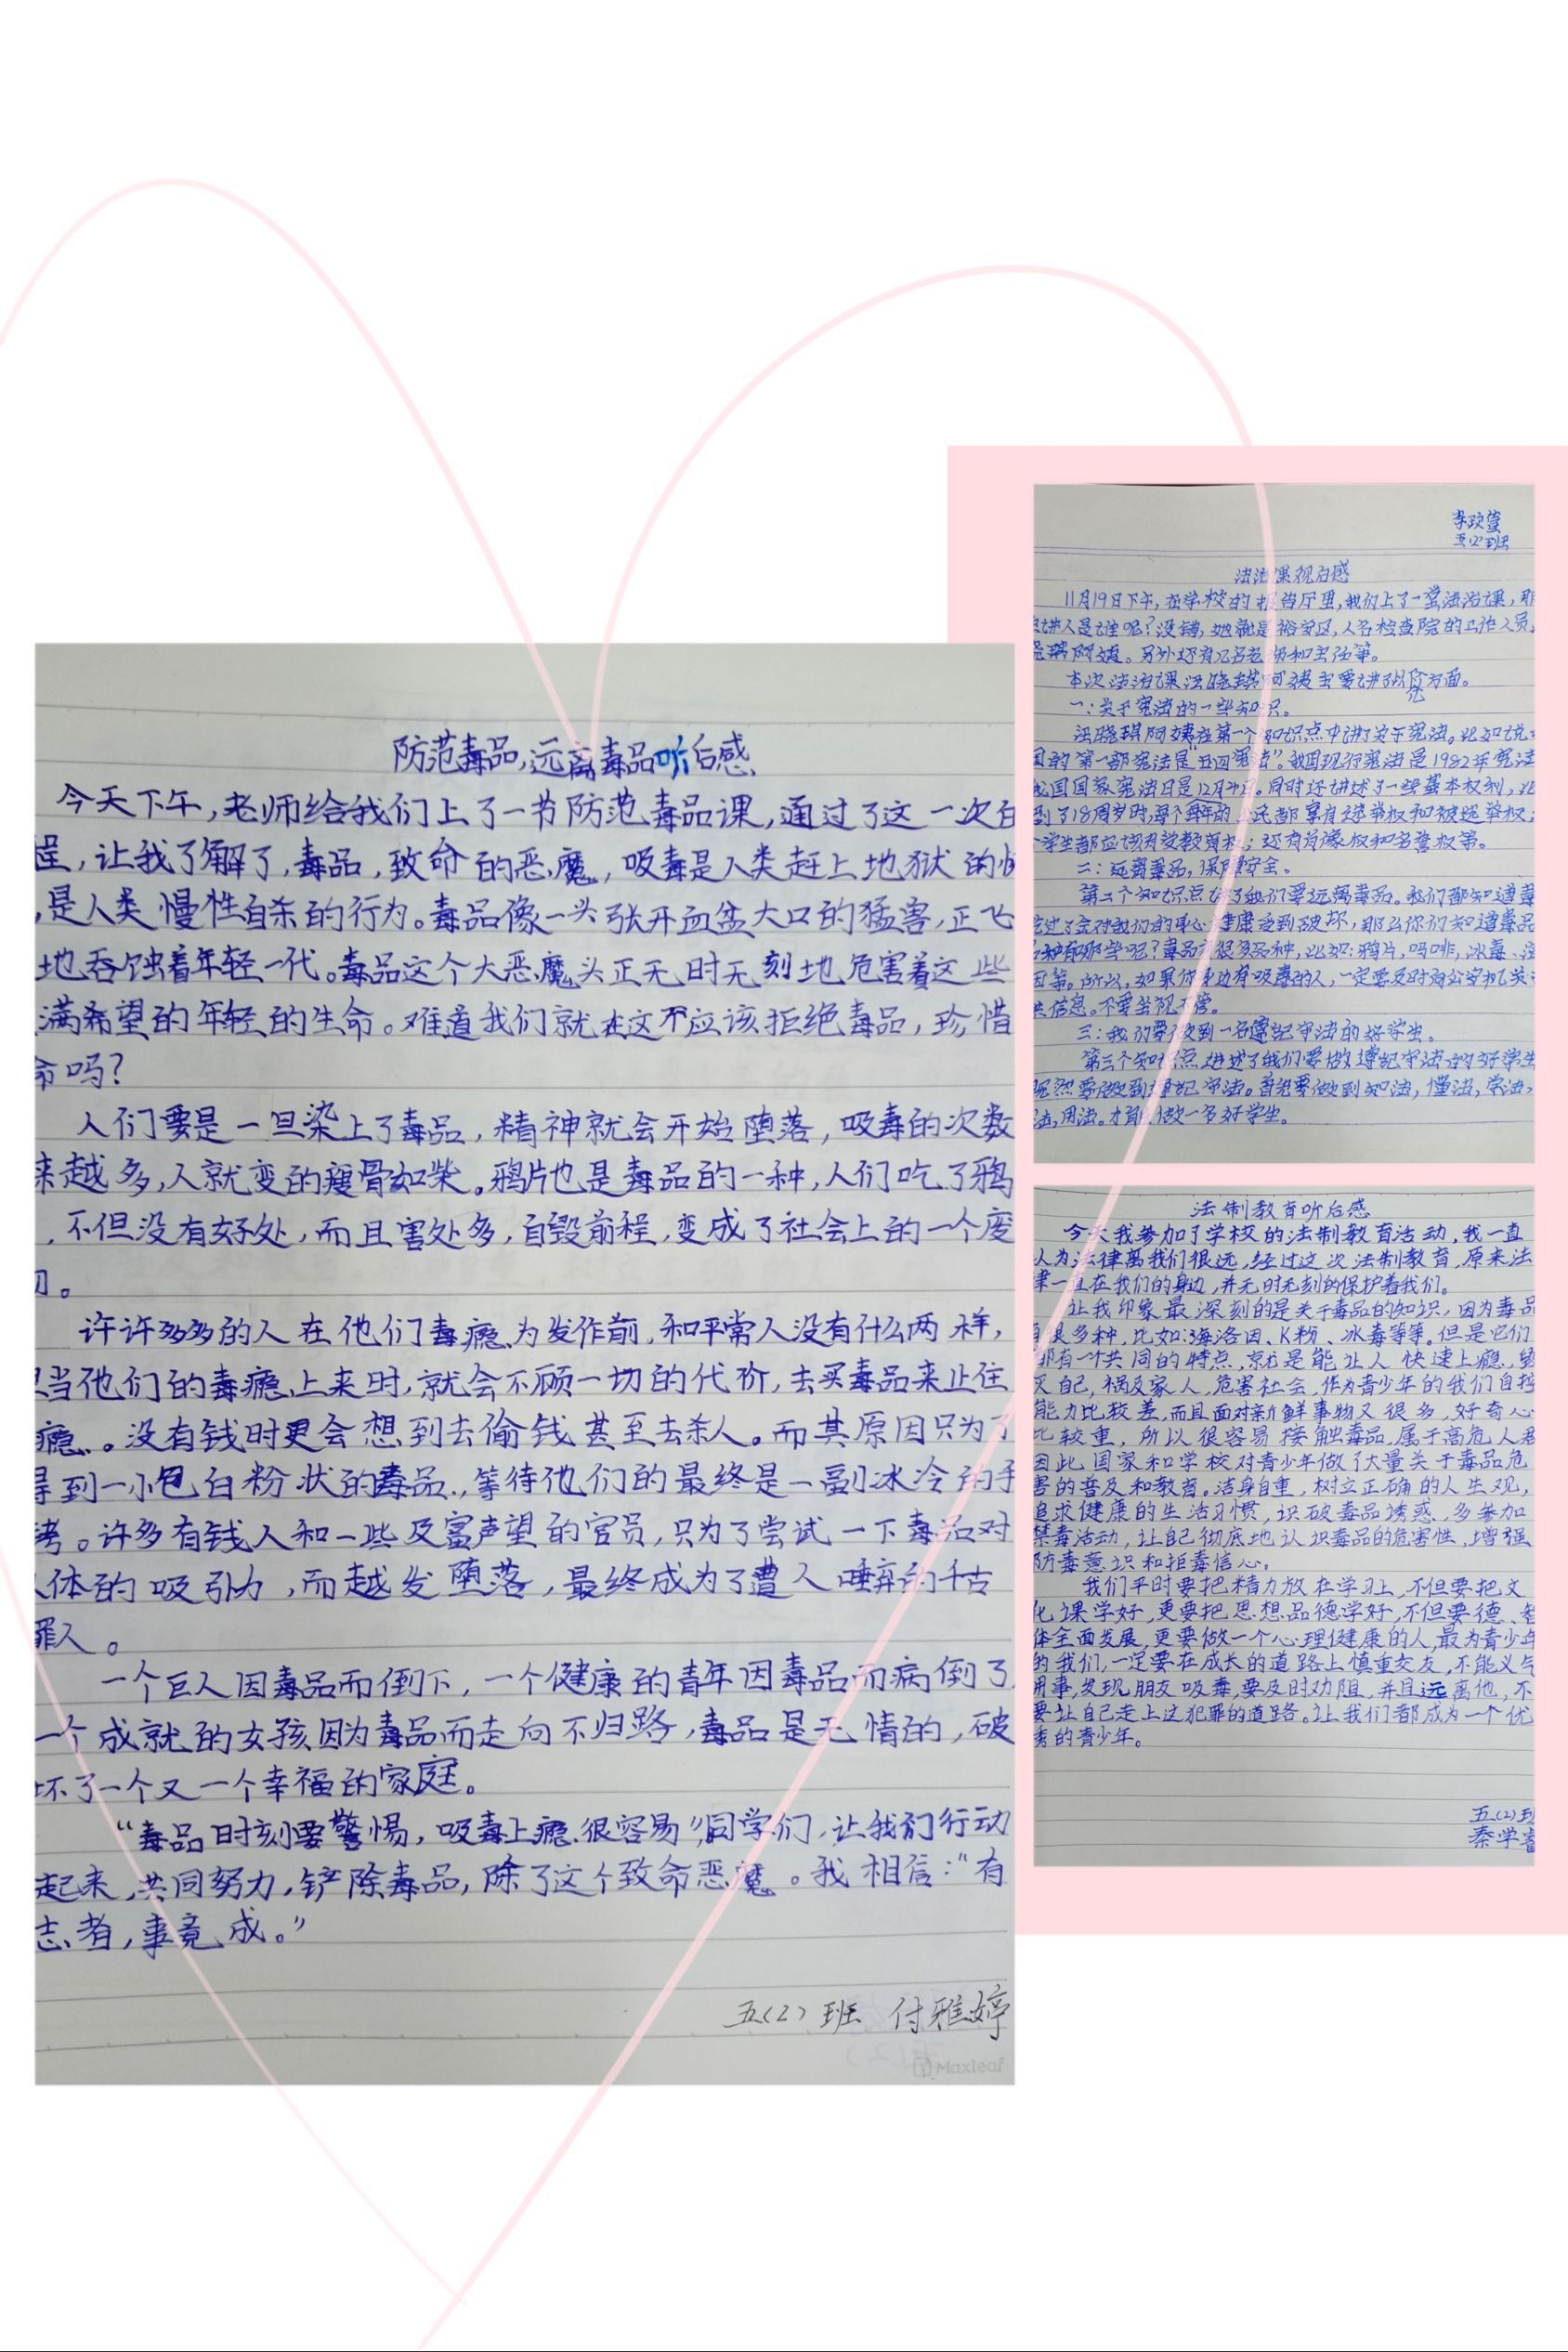 防范毒品,远离毒品听后感
今天下午,老师给我们上了一节防范毒品课,通过了这一次
程,让我了解了,毒品,致命的恶魔,吸毒是人类赶上地狱的
,是人类慢性自杀的行为。毒品像一头张开血盆大口的猛害,正飞
地吞蚀着年轻一代。毒品这个大恶魔头正无时无刻地危害着这些
满希望的年轻的生命。难道我们就在这不应该拒绝毒品,珍惜
命吗?
人们要是一旦染上了毒品,精神就会开始堕落,吸毒的次数
来越多,人就变的瘦骨如柴。鸦片也是毒品的一种,人们吃了鸦
,不但没有好处,而且害处多,自毁前程,变成了社会上的一个废
。
许许多多的人在他们毒瘾为发作前,和平常人没有什么两样,
当他们的毒瘾上来时,就会不顾一切的代价,去买毒品来止住
瘾。没有钱时更会想到去偷钱甚至去杀人。而其原因只为了
得到一小包白粉状的毒品,等待他们的最终是一副冰冷的手
铐。许多有钱人和一些及富声望的官员,只为了尝试一下毒品对
人体的吸引力,而越发堕落,最终成为了遭人唾弃的千古
罪人。
一个巨人因毒品而倒下,一个健康的青年因毒品而病倒了
一个成就的女孩因为毒品而走向不归路,毒品是无情的,破
坏了一个又一个幸福的家庭。
“毒品时刻要警惕,吸毒上瘾很容易”同学们,让我们行动
起来,共同努力,铲除毒品,除了这个致命恶魔。我相信:“有
志者,事竟成。”
五(2)班 付雅婷
Maxleaf
五(2)班
法治课观后感
11月19日下午,在学校的报告厅里,我们上了一堂法治课,那
讲人是谁呢?没错,她就是裕安区,人名检查院的工作人员
阿姨。另外还有几名老师和主任等。
本次法治课汪晓琪阿姨主要讲了以
一:关于宪法的一些知识。
汪晓琪阿姨在第一个知识点中讲了关于宪法。比如说
国的第一部宪法是“五四宪法”。我国现行宪法是1982年宪法
我国国家宪法日是12月4日。同时还讲述了一些基本权利,比
到了18周岁时,每个 公民都享有选举权和被选举权;
学生都应该有受教育权;还有肖像权和名誉权等。
二:远离毒品,保障安全。
第二个知识点 了我们要远离毒品。我们都知道毒
过了会对我们的身心健康受到破坏,那么你们知道毒品
种有那些呢?毒品有很多品种,比如:鸦片,吗啡,冰毒、海
因等。所以,如果你身边有吸毒的人,一定要及时向公安机关
信息。不要当视不管。
三:我们要做到一名遵纪守法的好学生。
第三个知识点讲述了我们要做遵纪守法的好学生
既然要做到遵纪守法。首先要做到知法,懂法,学法,
法,用法。才能做一名好学生。
法制教育听后感
今天我参加了学校的法制教育活动,我一直
认为法律离我们很远,经过这次法制教育,原来法
律一直在我们的身边,并无时无刻的保护着我们。
让我印象最深刻的是关于毒品的知识,因为毒品
有很多种,比如:海洛因、K粉、冰毒等等。但是它们
都有一个共同的特点,就是能让人快速上瘾,毁
灭自己,祸及家人,危害社会,作为青少年的我们自控
能力比较差,而且面对新鲜事物又很多,好奇心
比较重,所以很容易接触毒品,属于高危人群
因此国家和学校对青少年做了大量关于毒品危
害的普及和教育。洁身自重,树立正确的人生观,
追求健康的生活习惯,识破毒品诱惑,多参加
禁毒活动,让自己彻底地认识毒品的危害性,增强
防毒意识和拒毒信心。
我们平时要把精力放在学习上,不但要把文
化课学好,更要把思想品德学好,不但要德、智
体全面发展,更要做一个心理健康的人,最为青少年
的我们,一定要在成长的道路上慎重交友,不能义气
用事,发现朋友吸毒,要及时劝阻,并且远离他,不
要让自己走上这犯罪的道路。让我们都成为一个优
秀的青少年。
五(2)班
秦学